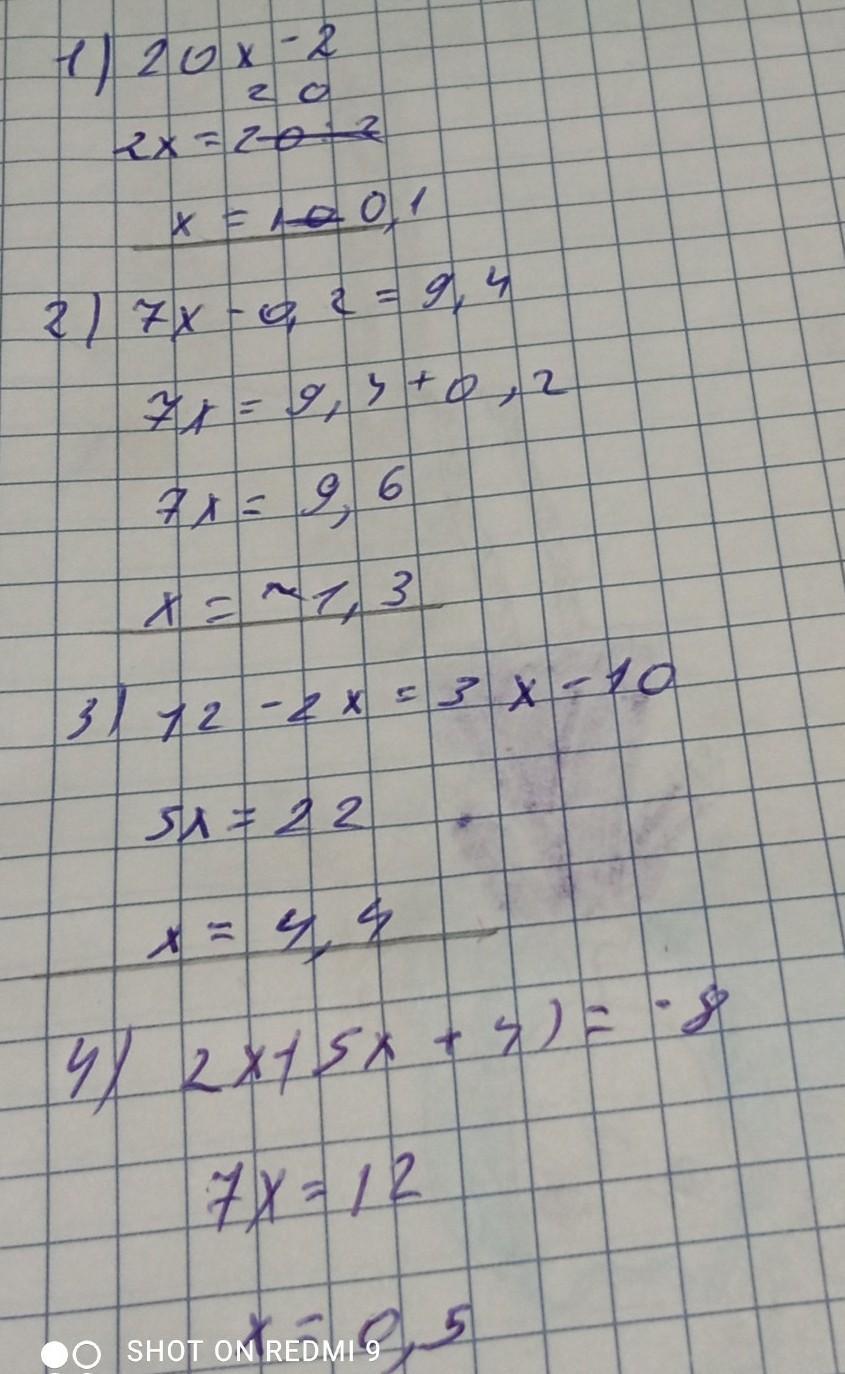 1) 20x - 2
20
2x = 20 : 2
x = 10 0,1
2) 7x - 0,2 = 9,4
7x = 9,4 + 0,2
7x = 9,6
x = ~1,3
3) 12 - 2x = 3x - 10
5x = 22
x = 4,4
4) 2x(5x + 4) = -8
7x = 12
x = 0,5
SHOT ON REDMI 9